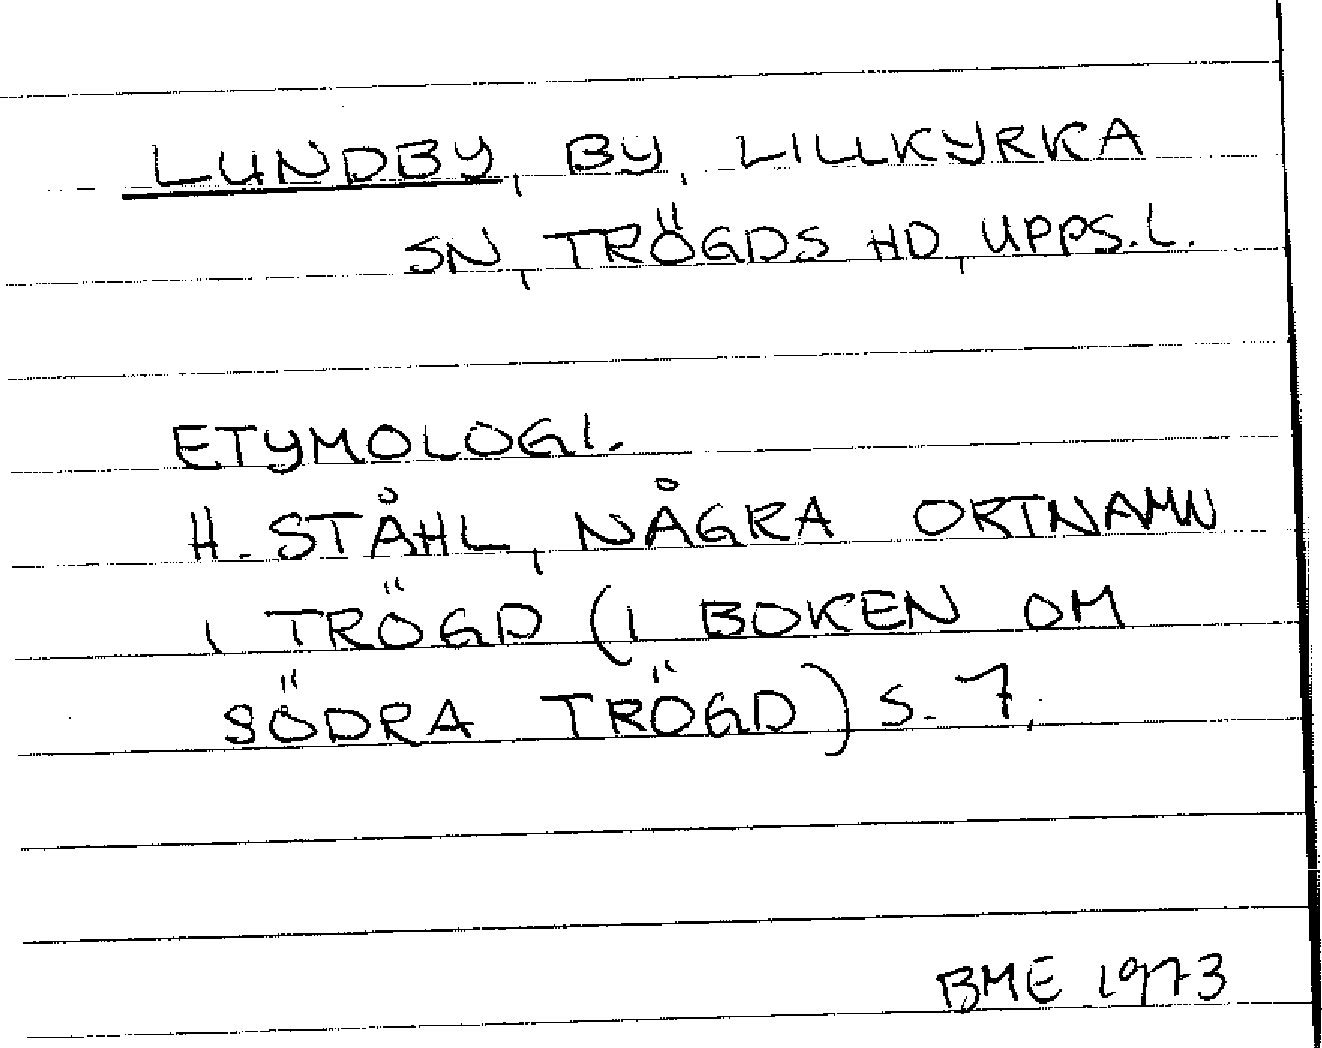 LUNDBY, BY, LILLKYRKA
SN, TRÖGDS HD, UPPS.L.
ETYMOLOGI.
H. STÅHL, NÅGRA ORTNAMN
I TRÖGD (I BOKEN OM
SÖDRA TRÖGD) S. 7.
BME 1973